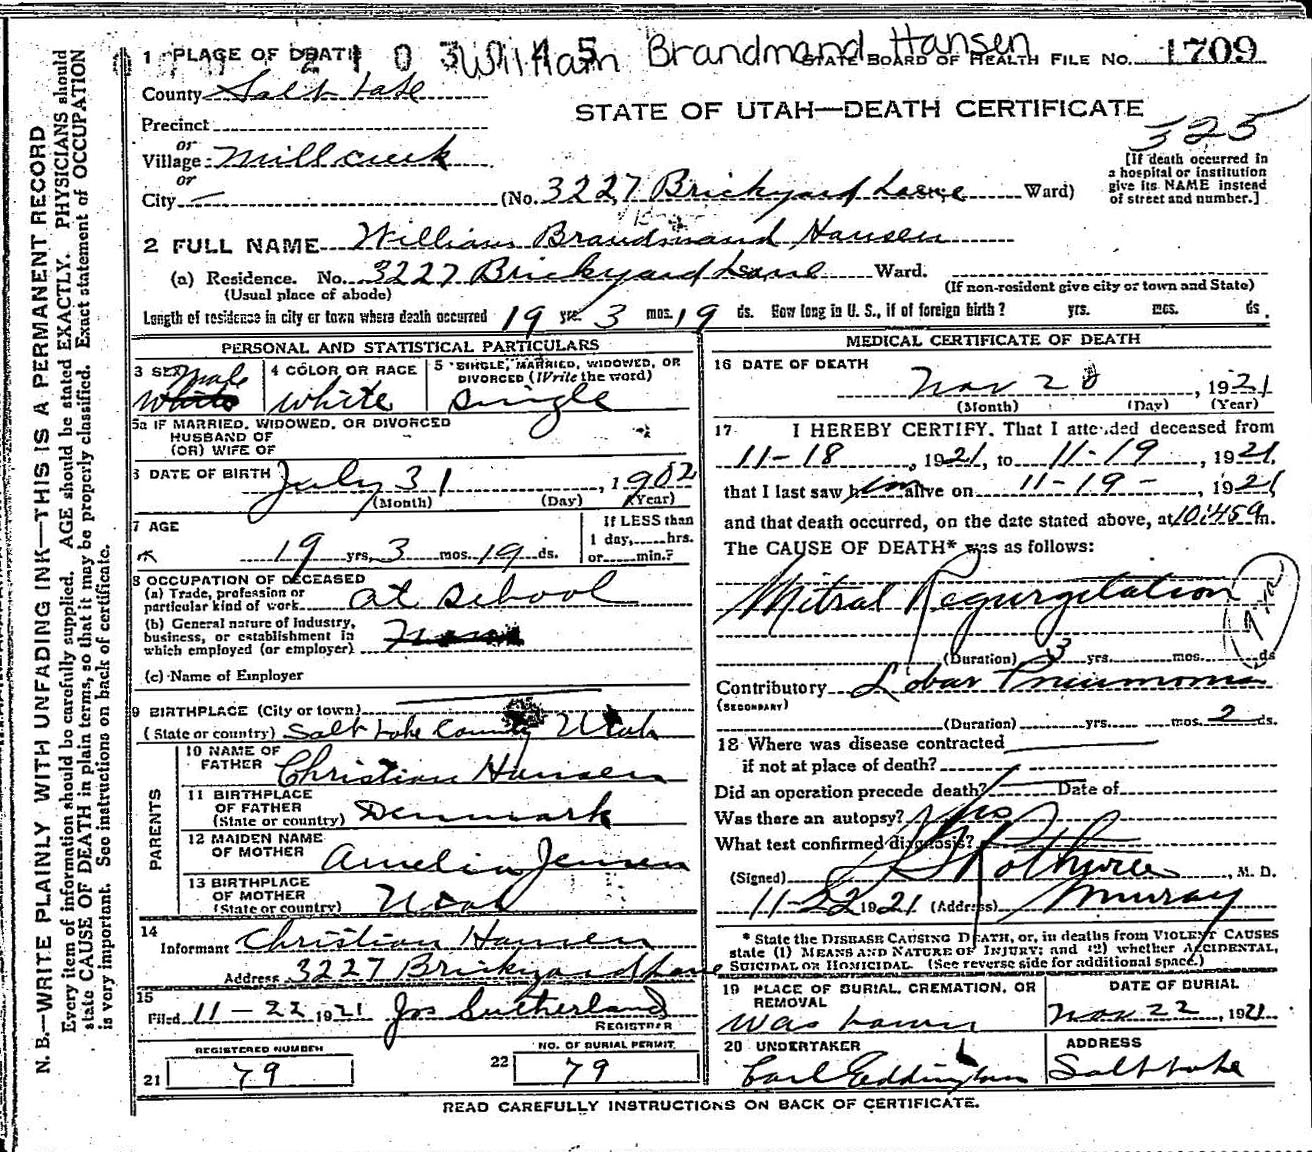 William Brandmand Hansen
1 PLACE OF DEATH
STATE BOARD OF HEALTH FILE No. 1709
County Salt Lake
STATE OF UTAH—DEATH CERTIFICATE
325
Precinct
or
Village Millcreek
or
City —
(No. 3227 Brickyard Lane Ward)
[If death occurred in
a hospital or institution
give its NAME instead
of street and number.]
2 FULL NAME William Brandmand Hansen
(a) Residence. No. 3227 Brickyard Lane Ward.
(Usual place of abode)
(If non-resident give city or town and State)
Length of residence in city or town where death occurred 19 yrs. 3 mos. 19 ds. How long in U. S., if of foreign birth? yrs. mos. ds.
PERSONAL AND STATISTICAL PARTICULARS
3 SEX Male
White
4 COLOR OR RACE
white
5 SINGLE, MARRIED, WIDOWED, OR
DIVORCED (Write the word)
single
5a IF MARRIED, WIDOWED, OR DIVORCED
HUSBAND OF
(OR) WIFE OF
6 DATE OF BIRTH July 31, 1902
(Month) (Day) (Year)
7 AGE
19 yrs. 3 mos. 19 ds.
If LESS than
1 day, hrs.
or min.?
8 OCCUPATION OF DECEASED
(a) Trade, profession or
particular kind of work at school
(b) General nature of Industry,
business, or establishment in
which employed (or employer)
(c) Name of Employer
9 BIRTHPLACE (City or town)
(State or country) Salt Lake County Utah
PARENTS
10 NAME OF
FATHER Christian Hansen
11 BIRTHPLACE
OF FATHER
(State or country) Denmark
12 MAIDEN NAME
OF MOTHER Amelia Jensen
13 BIRTHPLACE
OF MOTHER
(State or country) Utah
14
Informant Christian Hansen
Address 3227 Brickyard Lane
15
Filed 11-22 1921 Jos Sutherland
REGISTRAR
REGISTERED NUMBER
21 79
NO. OF BURIAL PERMIT
22 79
MEDICAL CERTIFICATE OF DEATH
16 DATE OF DEATH
Nov 20, 1921
(Month) (Day) (Year)
17 I HEREBY CERTIFY, That I attended deceased from
11-18, 1921, to 11-19, 1921,
that I last saw him alive on 11-19-, 1921
and that death occurred, on the date stated above, at 10:45 m.
The CAUSE OF DEATH* was as follows:
Mitral Regurgitation
(Duration) 3 yrs. mos. ds
Contributory Lobar Pneumonia
(SECONDARY)
(Duration) yrs. mos. 2 ds.
18 Where was disease contracted
if not at place of death?
Did an operation precede death? Date of
Was there an autopsy? No
What test confirmed diagnosis?
(Signed) , M. D.
11-22 1921 (Address) Murray
* State the DISEASE CAUSING DEATH, or, in deaths from VIOLENT CAUSES
state (1) MEANS AND NATURE OF INJURY; and (2) whether ACCIDENTAL,
SUICIDAL OR HOMICIDAL. (See reverse side for additional space.)
19 PLACE OF BURIAL, CREMATION, OR
REMOVAL
Was Lawn
DATE OF BURIAL
Nov 22, 1921
20 UNDERTAKER
Carl Eddington
ADDRESS
Salt Lake
READ CAREFULLY INSTRUCTIONS ON BACK OF CERTIFICATE.
N. B.—WRITE PLAINLY WITH UNFADING INK—THIS IS A PERMANENT RECORD
Every item of information should be carefully supplied. AGE should be stated EXACTLY. PHYSICIANS should
state CAUSE OF DEATH in plain terms, so that it may be properly classified. Exact statement of OCCUPATION
is very important. See instructions on back of certificate.